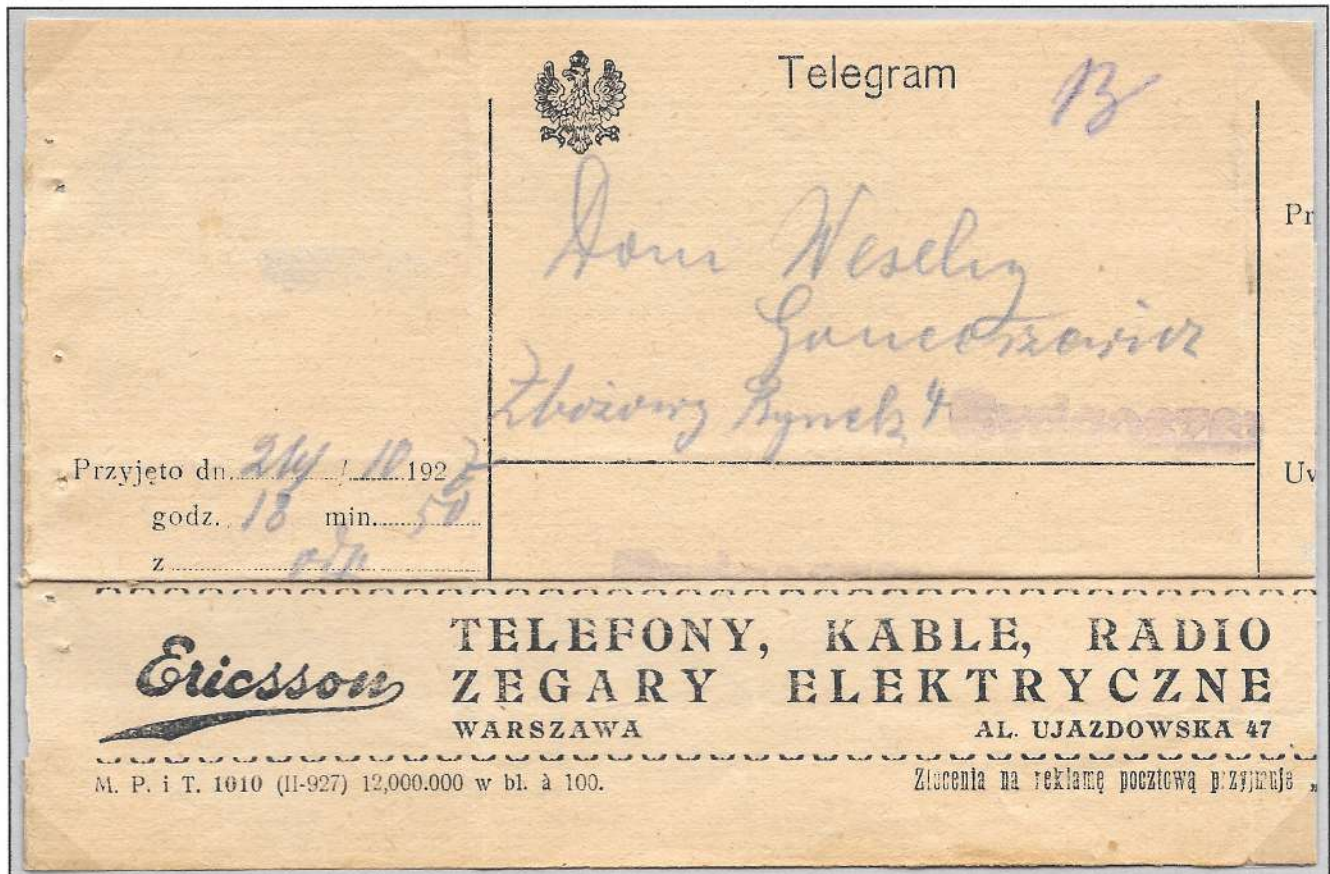 Telegram
Dom Weselny
Zbożowy Rynek 4
Pr
Przyjęto dn. / 10 192
godz. 18 min. 50
z
Uw
Ericsson
TELEFONY, KABLE, RADIO
ZEGARY ELEKTRYCZNE
WARSZAWA AL. UJAZDOWSKA 47
M. P. i T. 1010 (II-927) 12,000.000 w bl. à 100.
Zlecenia na reklamę pocztową przyjmuje „